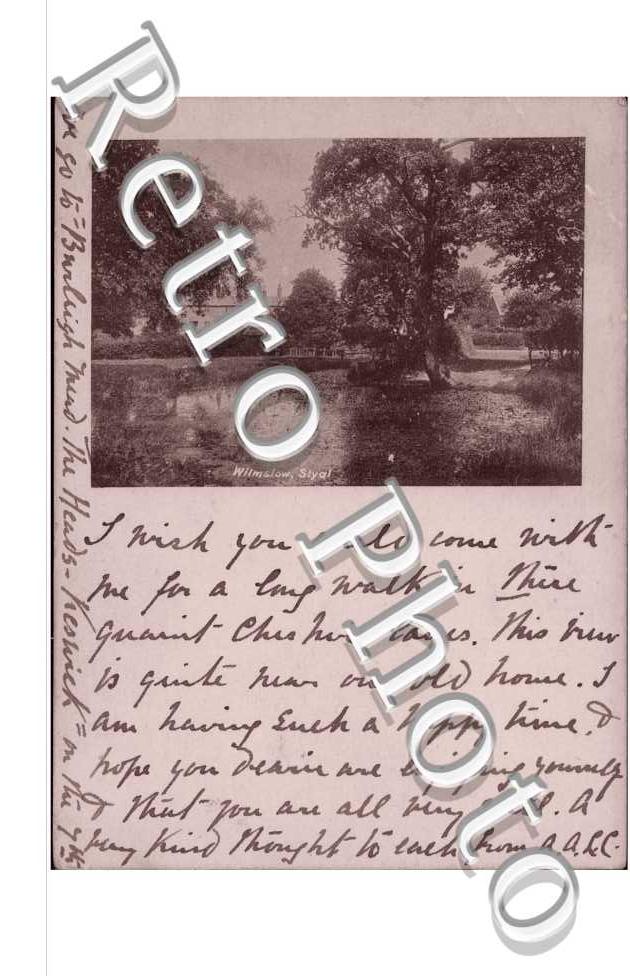 Retro Photo
Wilmslow, Styal
I wish you could come with
me for a long walk in these
quaint Cheshire lanes. This view
is quite near our old home. I
am having such a happy time. &
hope you dearie are enjoying yourself
& that you are all very well. A
very kind thought to each from A.A.L.C.
we go to "Burleigh Mead. The Heads - Keswick" on the 7th